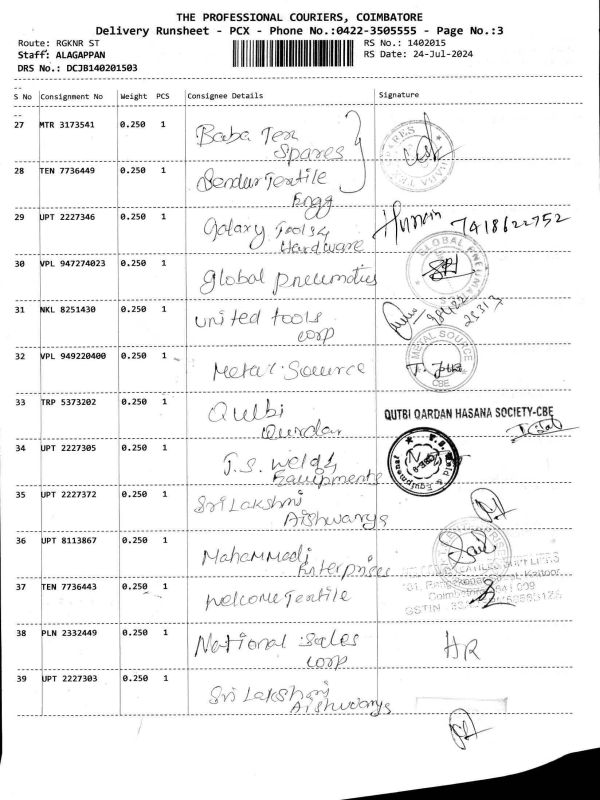 THE PROFESSIONAL COURIERS, COIMBATORE
Delivery Runsheet - PCX - Phone No.:0422-3505555 - Page No.:3
Route: RGKNR ST
RS No.: 1402015
Staff: ALAGAPPAN
RS Date: 24-Jul-2024
DRS No.: DCJB140201503
S No Consignment No Weight PCS Consignee Details Signature
27 MTR 3173541 0.250 1 Baba Tex
Spares
28 TEN 7736449 0.250 1 Textile
Engg
29 UPT 2227346 0.250 1 Galaxy Tools &
Hardware
Hussain 7418622752
30 VPL 947274023 0.250 1 Global Pneumatics
GLOBAL PNEUMATICS
31 NKL 8251430 0.250 1 United tools
corp
32 VPL 949220400 0.250 1 Metal Source
METAL SOURCE
CBE
33 TRP 5373202 0.250 1 Qutbi
Qurdan
QUTBI QARDAN HASANA SOCIETY-CBE
34 UPT 2227305 0.250 1 T.S. Weld &
Equipments
35 UPT 2227372 0.250 1 Sri Lakshmi
Aishwarya
36 UPT 8113867 0.250 1 Mahammadi
Enterprises
37 TEN 7736443 0.250 1 Welcome Textile
38 PLN 2332449 0.250 1 National Sales
corp
HR
39 UPT 2227303 0.250 1 Sri Lakshmi
Aishwarya